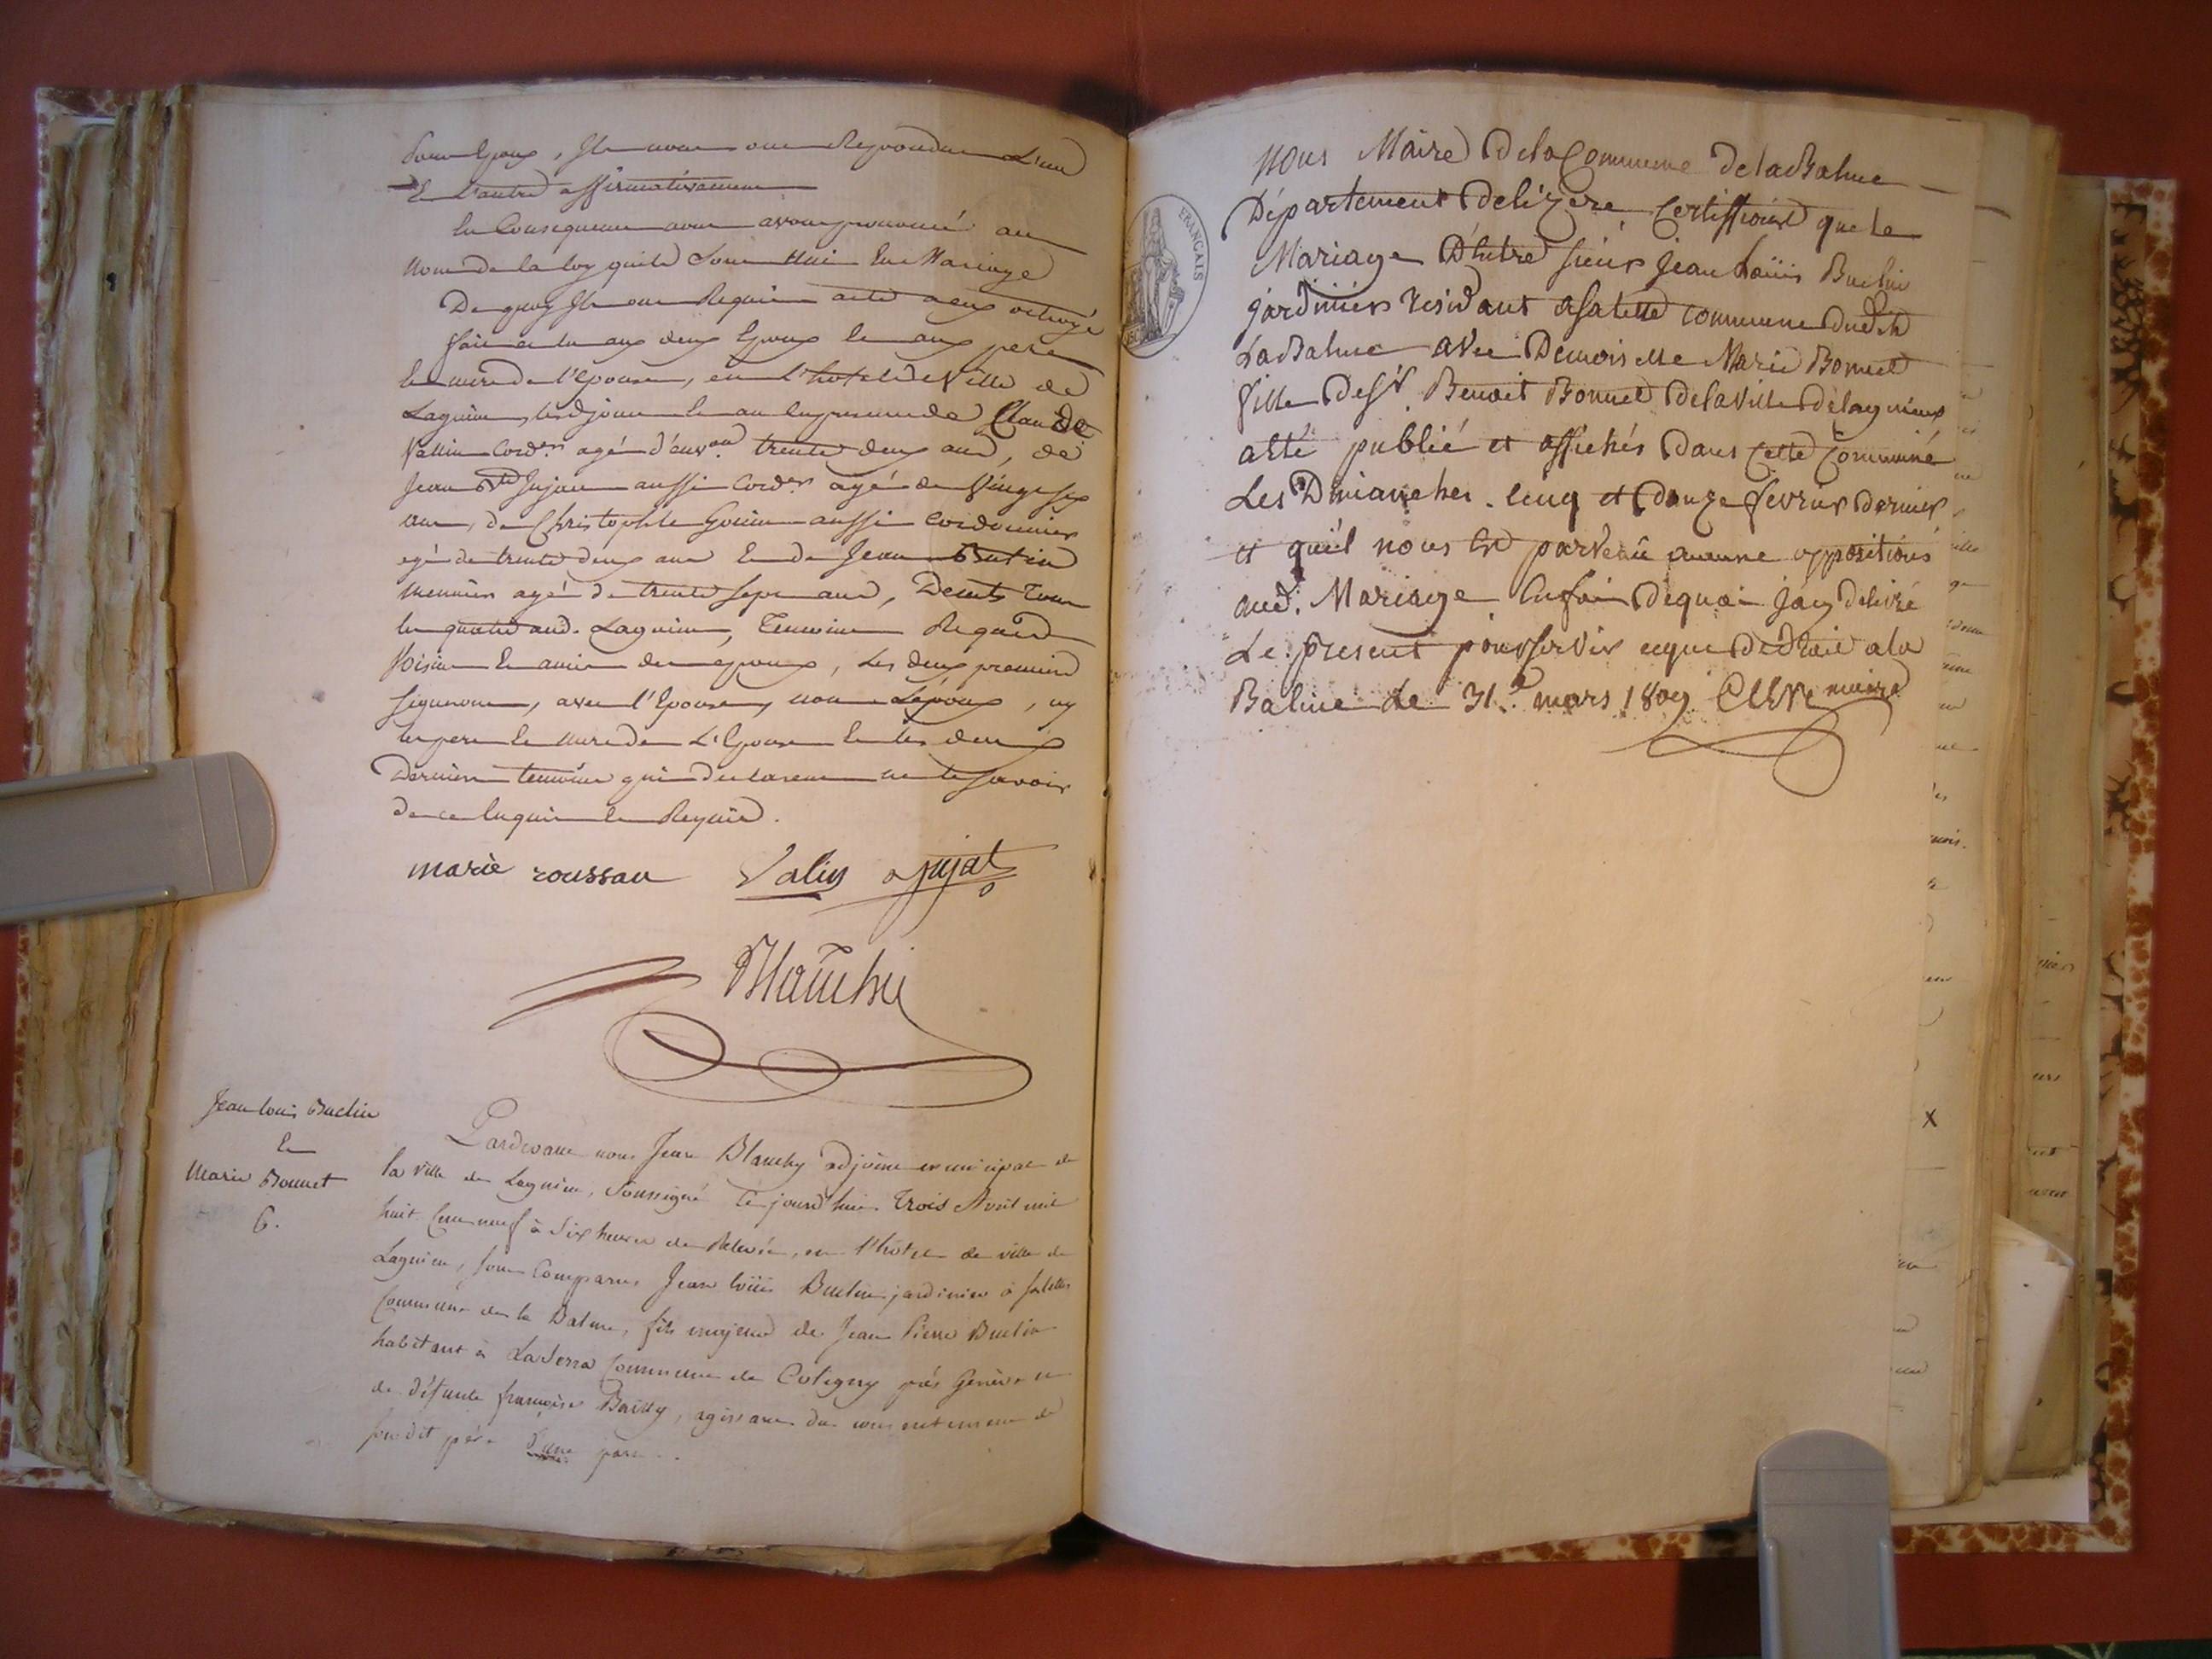 pour Epoux, Ils nous ont Repondu L'un
Et L'autre affirmativement
En Consequence avons prononcé au
Nom de la loy quils sont Unis En Mariage
De quoy Ils ont Requis acte a eux octroyé
fait et lu aux deux Epoux et aux pere
et mere de l'epouse, en L'hotel de Ville de
Lagnieu, lesd jour et an En presence de Claude
Vallin Cord.er agé d'env.on trente deux ans, de
Jean Bte Jujat aussi Cord.er agé de Vingt six
ans, de Christophle Goiin aussi Cordonnier
agé de trente deux ans Et de Jean Butin
Meunier agé de trente sept ans, Demt. Tous
les quatre aud. Lagnieu, Temoins Requis
Voisins Et amis des epoux, Les deux premiers
signerons, avec l'Epouse, non L'époux, ny
les pere et mere de L'Epouse Et les deux
Derniers temoins qui declarent ne le savoir
de ce Enquis et Requis.
marie roussau Valin Jujat
Blanchy
Jean louis Buclin
Et
Marie Bonnet
6.
Pardevant nous Jean Blanchy adjoint municipal de
la ville de Lagnieu, Soussigné Ce jourd'hui Trois Avril mil
huit Cent neuf à Six heures de Relevée, en l'hôtel de ville de
Lagnieu, sont Comparus Jean loüis Buclin jardinier à salettes
Commune de la Balme, fils majeur de Jean Pierre Buclin
habitant à La Commune de Coligny près Genève et
de défunte françoise Bailly, agissant du consentement de
son dit père d'une part.
FRANÇAIS
Nous Maire De la Commune De la Balme
Département De lizere Certiffions que le
Mariage D'Entre sieur Jean Loüis Buclin
jardinier residant a Salette commune Dudit
La Balme avec Demoiselle Marie Bonnet
fille De Sr. Benoit Bonnet De la Ville De lagnieux
a été publié et affichés Dans Cette Commune
Les Dimanches cinq et Douze fevrier Dernier
et qu'il nous Est parvenü aucune oppositions
aud. Mariage En foi De quoi jay Delivré
Le present pour servir ce que De Droit a la
Balme Le 31.e mars 1809 maire
X